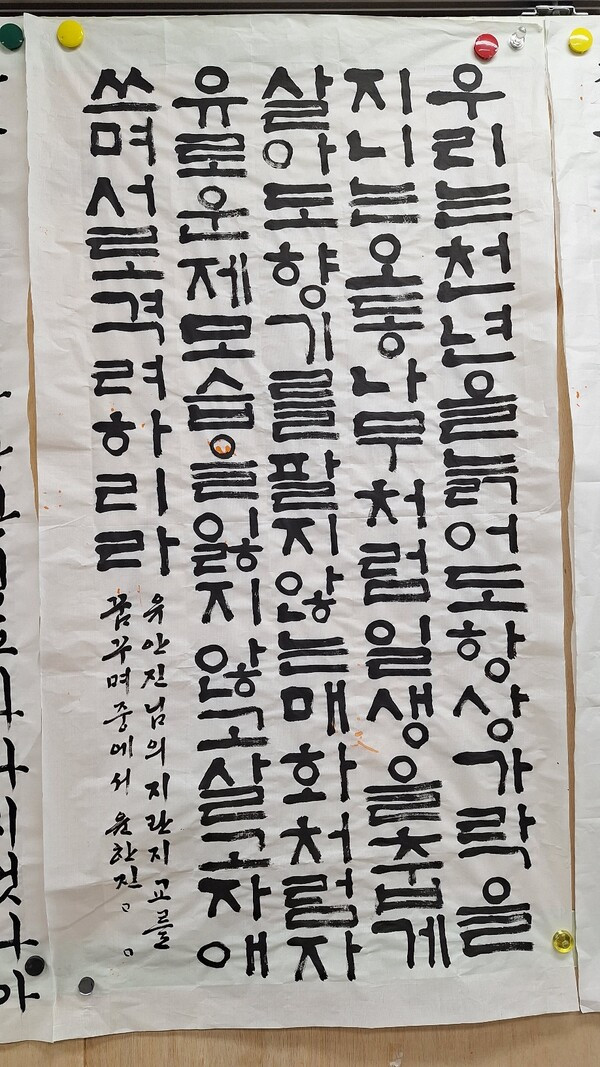 우리는천년을늙어도항상가락을
지니는오동나무처럼일생을춥게
살아도향기를팔지않는매화처럼자
유로운제모습을잃지않고살고자애
쓰며서로격려하리라
유안진님의지란지교를
꿈꾸며중에서 윤한진